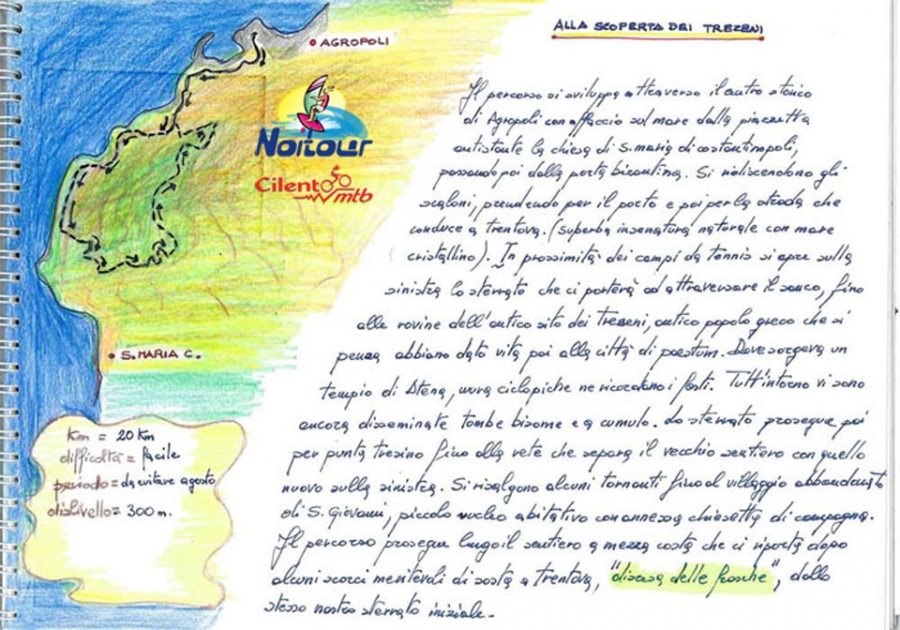 ALLA SCOPERTA DEI TREZENI
AGROPOLI
Noitour
Cilento
mtb
S. MARIA C.
Km = 20 Km
difficoltà = facile
periodo = da evitare agosto
dislivello = 300 m.
Il percorso si sviluppa attraverso il centro storico
di Agropoli con affaccio sul mare dalla piazzetta
antistante la chiesa di S. maria di costantinopoli,
passando poi dalla porta bizantina. Si ridiscendono gli
scaloni, prendendo per il porto e poi per la strada che
conduce a trentova. (superba insenatura naturale con mare
cristallino). In prossimità dei campi da tennis si apre sulla
sinistra lo sterrato che ci porterà ad attraversare il sauco, fino
alle rovine dell'antico sito dei trezeni, antico popolo greco che si
pensa abbiano dato vita poi alla città di paestum. Dove sorgeva un
tempio di Atena, mura ciclopiche ne ricordano i fasti. Tutt'intorno vi sono
ancora disseminate tombe bisome e a cumulo. Lo sterrato prosegue poi
per punta tresino fino alla rete che separa il vecchio sentiero con quello
nuovo sulla sinistra. Si risalgono alcuni tornanti fino al villaggio abbandonato
di S. Giovanni, piccolo nucleo abitativo con annessa chiesetta di campagna.
Il percorso prosegue lungo il sentiero a mezza costa che ci riporta dopo
alcuni scorci meritevoli di sosta a trentova, "discesa delle fresche", dallo
stesso nostro sterrato iniziale.